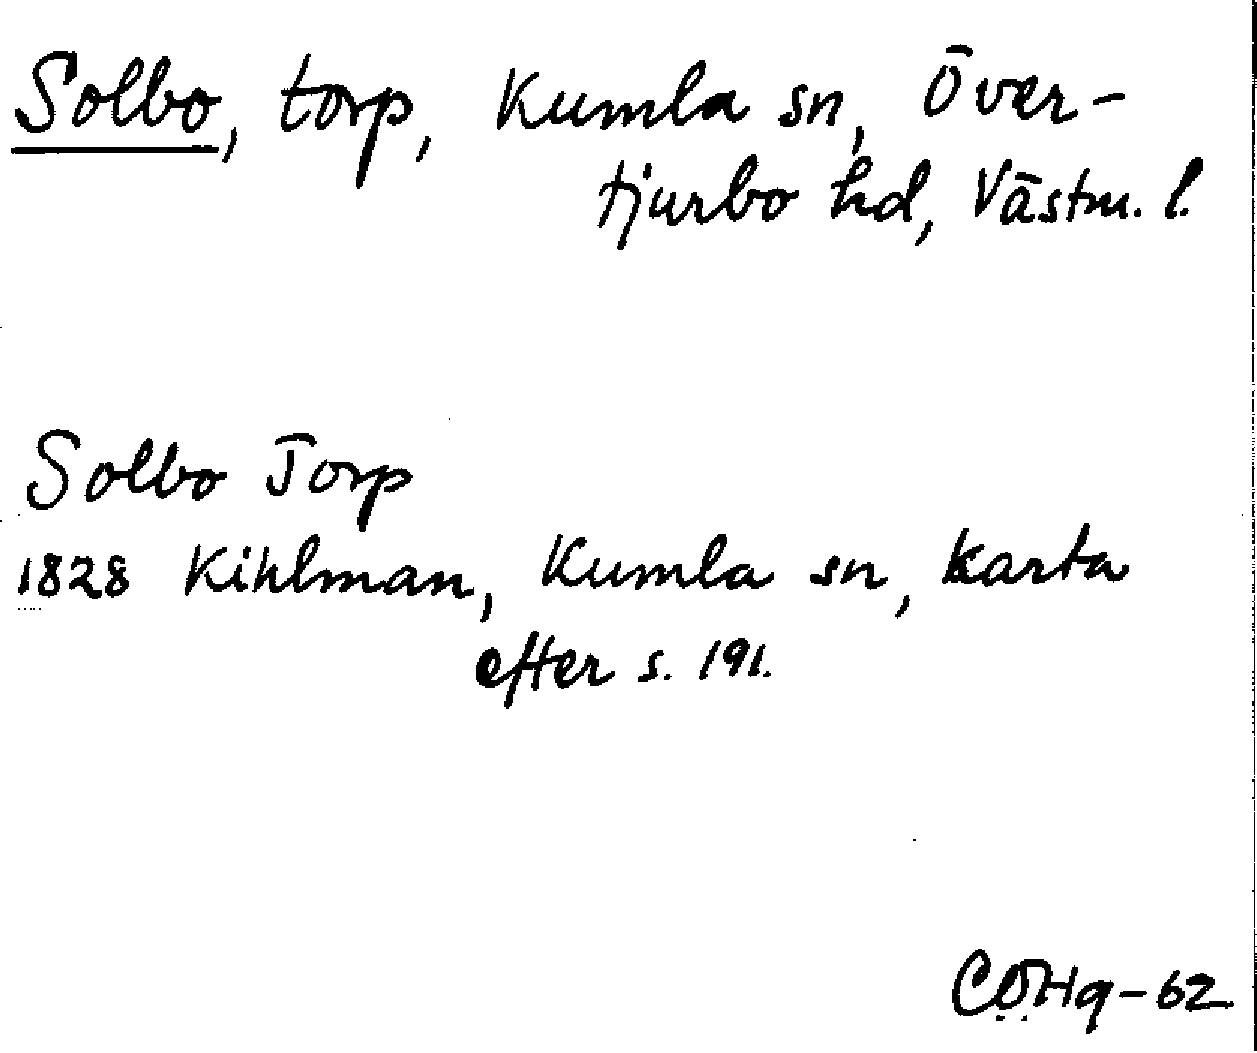 Solbo, torp, Kumla sn, Över-
tjurbo hd, Västm. l.
Solbo Torp
1828 Kihlman, Kumla sn, karta
efter s. 191.